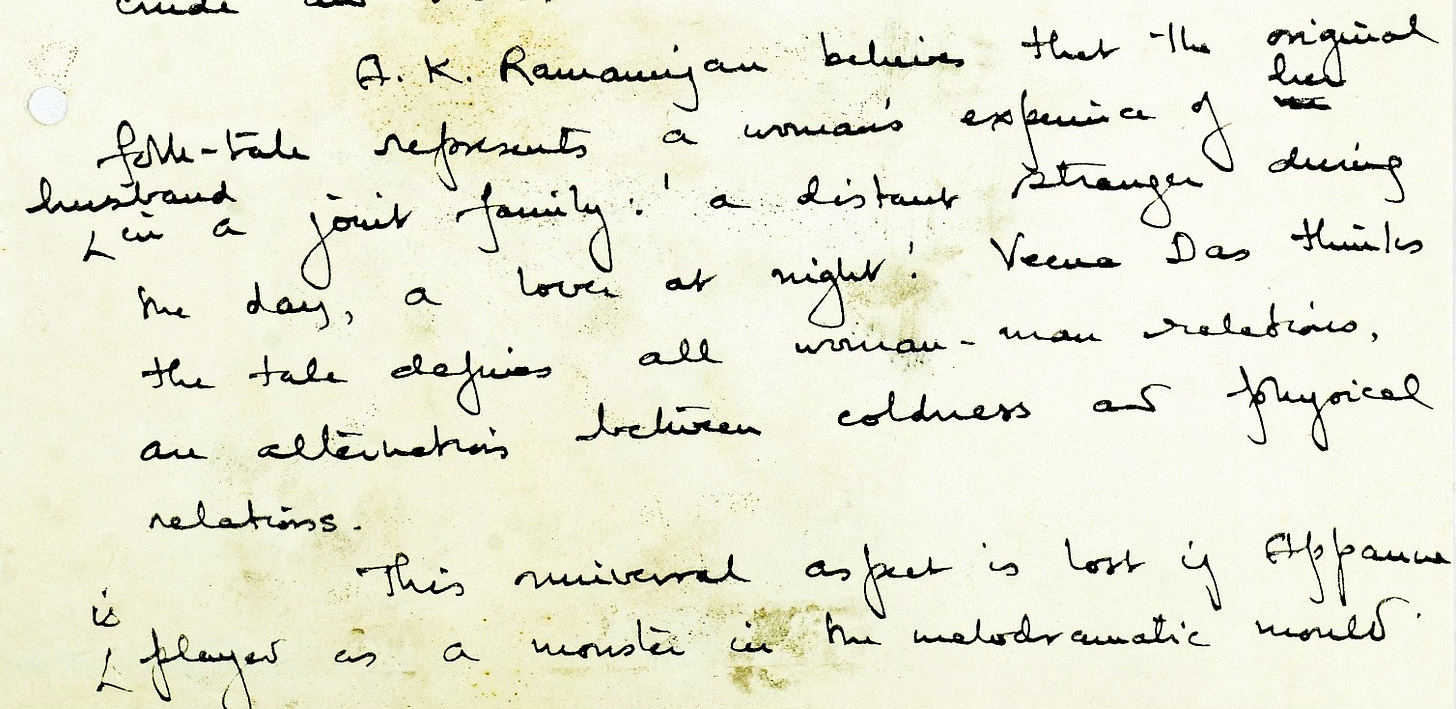 crude
A. K. Ramanujan believes that the original
folk-tale represents a woman's experience of her
husband
in a joint family: 'a distant stranger during
the day, a lover at night'. Veena Das thinks
the tale defines all woman-man relations,
an alternation between coldness and physical
relations.
This universal aspect is lost if Appanna
is
played as a monster in the melodramatic mould.